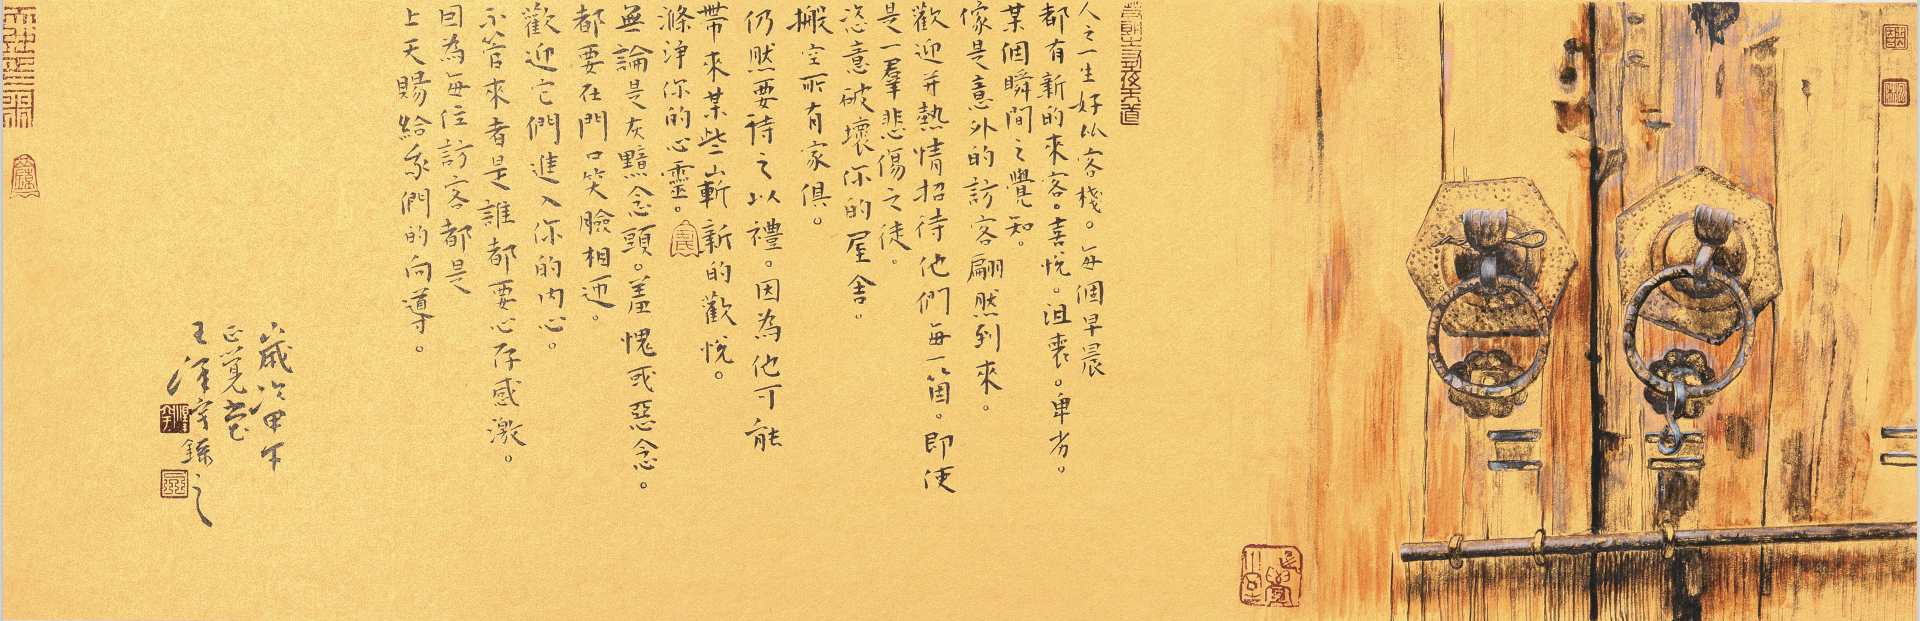 人之一生好似客棧。每個早晨
都有新的來客。喜悅。沮喪。卑劣。
某個瞬間之覺知。
像是意外的訪客翩然到來。
歡迎并熱情招待他們每一箇。即使
是一羣悲傷之徒。
恣意破壞你的屋舍。
搬空所有家俱。
仍然要待之以禮。因為他可能
帶來某些嶄新的歡悅。
滌淨你的心靈。
無論是灰黯念頭。羞愧或惡念。
都要在門口笑臉相迎。
歡迎它們進入你的內心。
不管來者是誰都要心存感激。
因為每位訪客都是
上天賜給我們的向導。
歲次甲午
正覺堂
王澤錄之